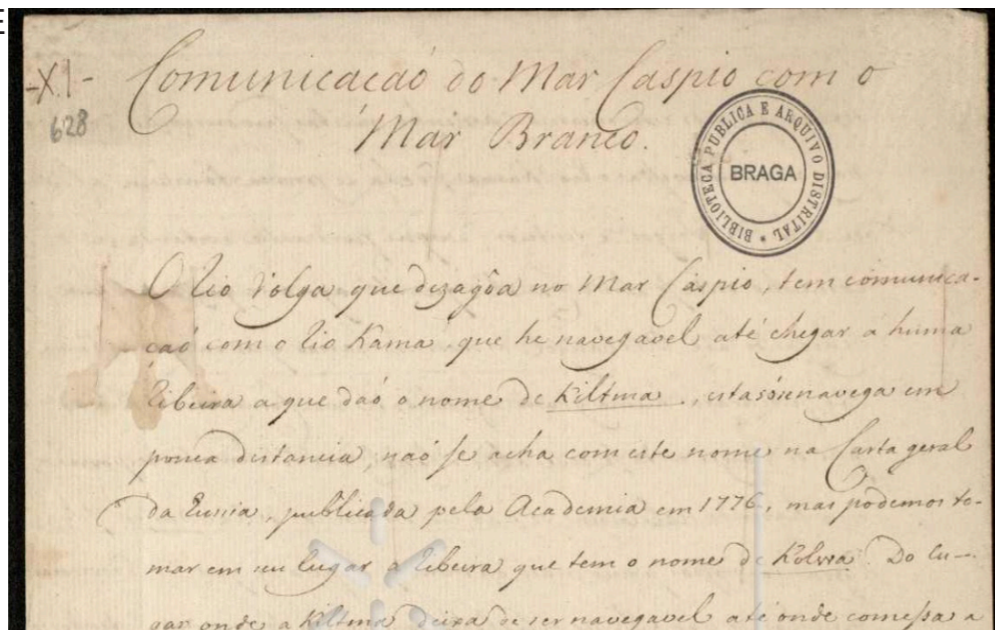 -X.1-
628
Comunicacaó do Mar Caspio com o
Mar Branco.
BIBLIOTECA PUBLICA E ARQUIVO DISTRITAL
BRAGA
O Rio Volga que dezagôa no Mar Caspio, tem comunica-
caó com o Rio Kama, que he navegavel até chegar a huma
Ribeira a que daó o nome de Kiltma, esta só se navega em
pouca distancia, naó se acha com este nome na Carta geral
da Russia, publicada pela Academia em 1776, mas podemos to-
mar em seu lugar a Ribeira que tem o nome de Kolvra. Do lu-
gar onde a Kiltma deixa de ser navegavel até onde comessa a